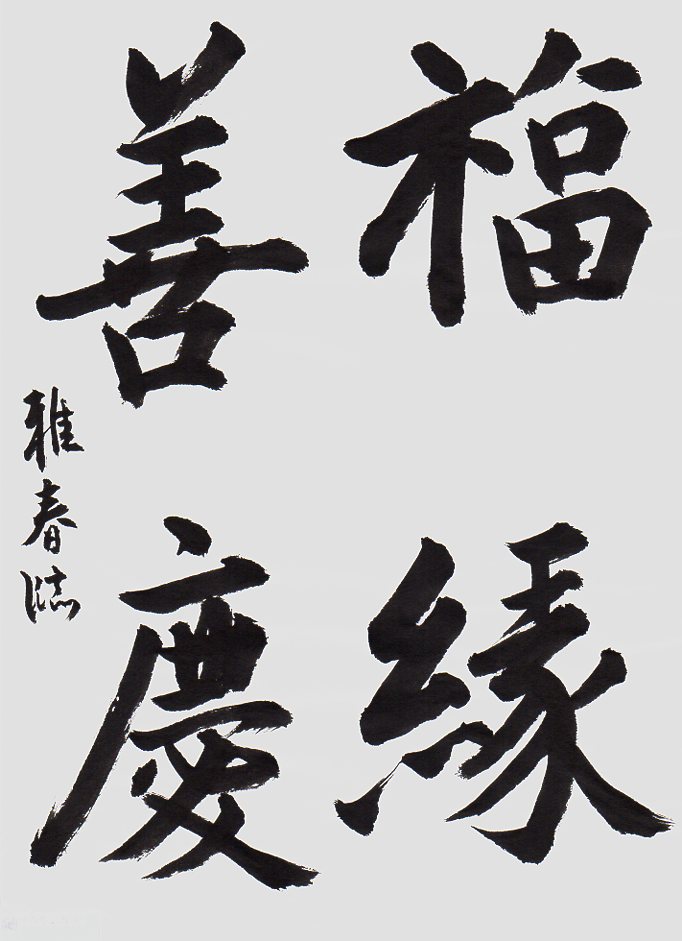 福縁
善慶
雅春臨